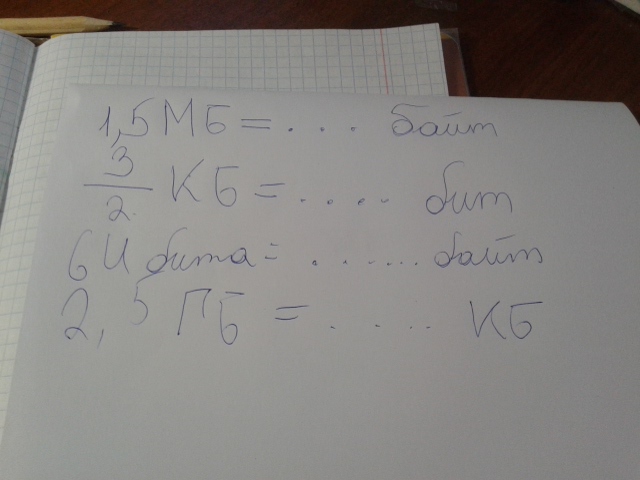 1,5 МБ = . . . байт
3/2 КБ = ..... бит
64 бита = ...... байт
2,5 ГБ = ..... КБ